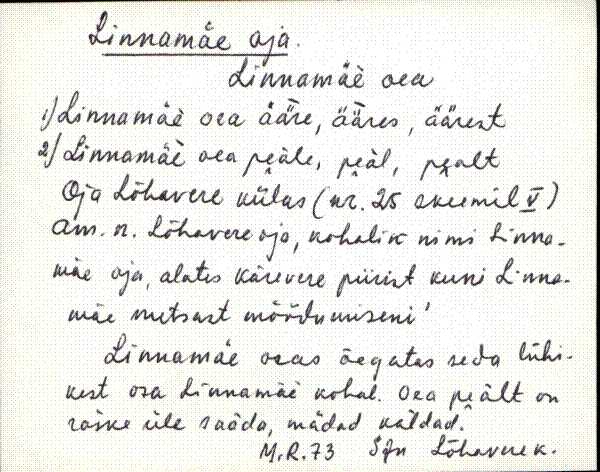 Linnamäe oja.
Linnamäè oea
1) Linnamäè oea ääre, ääres, äärest
2) Linnamäè oea peäle, peäl, pealt
Oja Lõhavere külas (nr. 25 skeemil V)
Am. n. Lõhavere oja, kohalik nimi Linna-
mäe oja, alates Kärevere piirist kuni Linna-
mäe metsast möödumiseni'
Linnamäe osas õegatas seda lühi-
kest osa Linnamäè kohal. Oea peält on
raske üle saada, mädad kaldad.
M.R. 73 Sjn Lõhavere k.